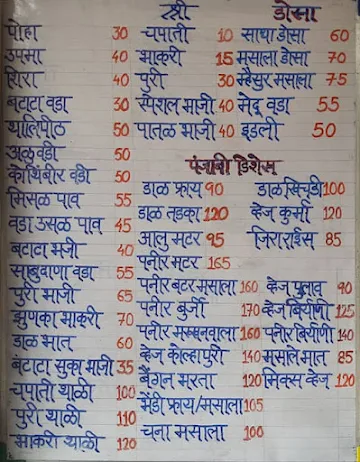 स्त्री
डोसा
पोहा 30
उपमा 40
शिरा 40
बटाटा वडा 30
थालिपीठ 50
अळुवडी 50
कोथिंबीर वडी 50
मिसळ पाव 55
वडा उसळ पाव 45
बटाटा भजी 40
साबुदाणा वडा 55
पुरी भाजी 65
झुणका भाकरी 70
डाळ भात 60
बटाटा सुका भाजी 35
चपाती थाळी 100
पुरी थाळी 110
भाकरी थाळी 120
चपाती 10
भाकरी 15
पुरी 30
स्पेशल भाजी 40
पातळ भाजी 40
साधा डोसा 60
मसाला डोसा 70
म्हैसुर मसाला 75
मेदू वडा 55
इडली 50
पंजाबी डिशेस
डाळ फ्राय 90
डाळ तडका 120
आलु मटर 95
पनीर मटर 165
पनीर बटर मसाला 160
पनीर बुर्जी 170
पनीर मख्खनवाला 160
व्हेज कोल्हापुरी 140
बैंगन भरता 120
भेंडी फ्राय/मसाला 105
चना मसाला 100
डाळ खिचडी 100
व्हेज कुर्मा 120
जिरा राईस 85
व्हेज पुलाव 90
व्हेज बिर्याणी 125
पनीर बिर्याणी 140
मसाले भात 85
मिक्स व्हेज 120